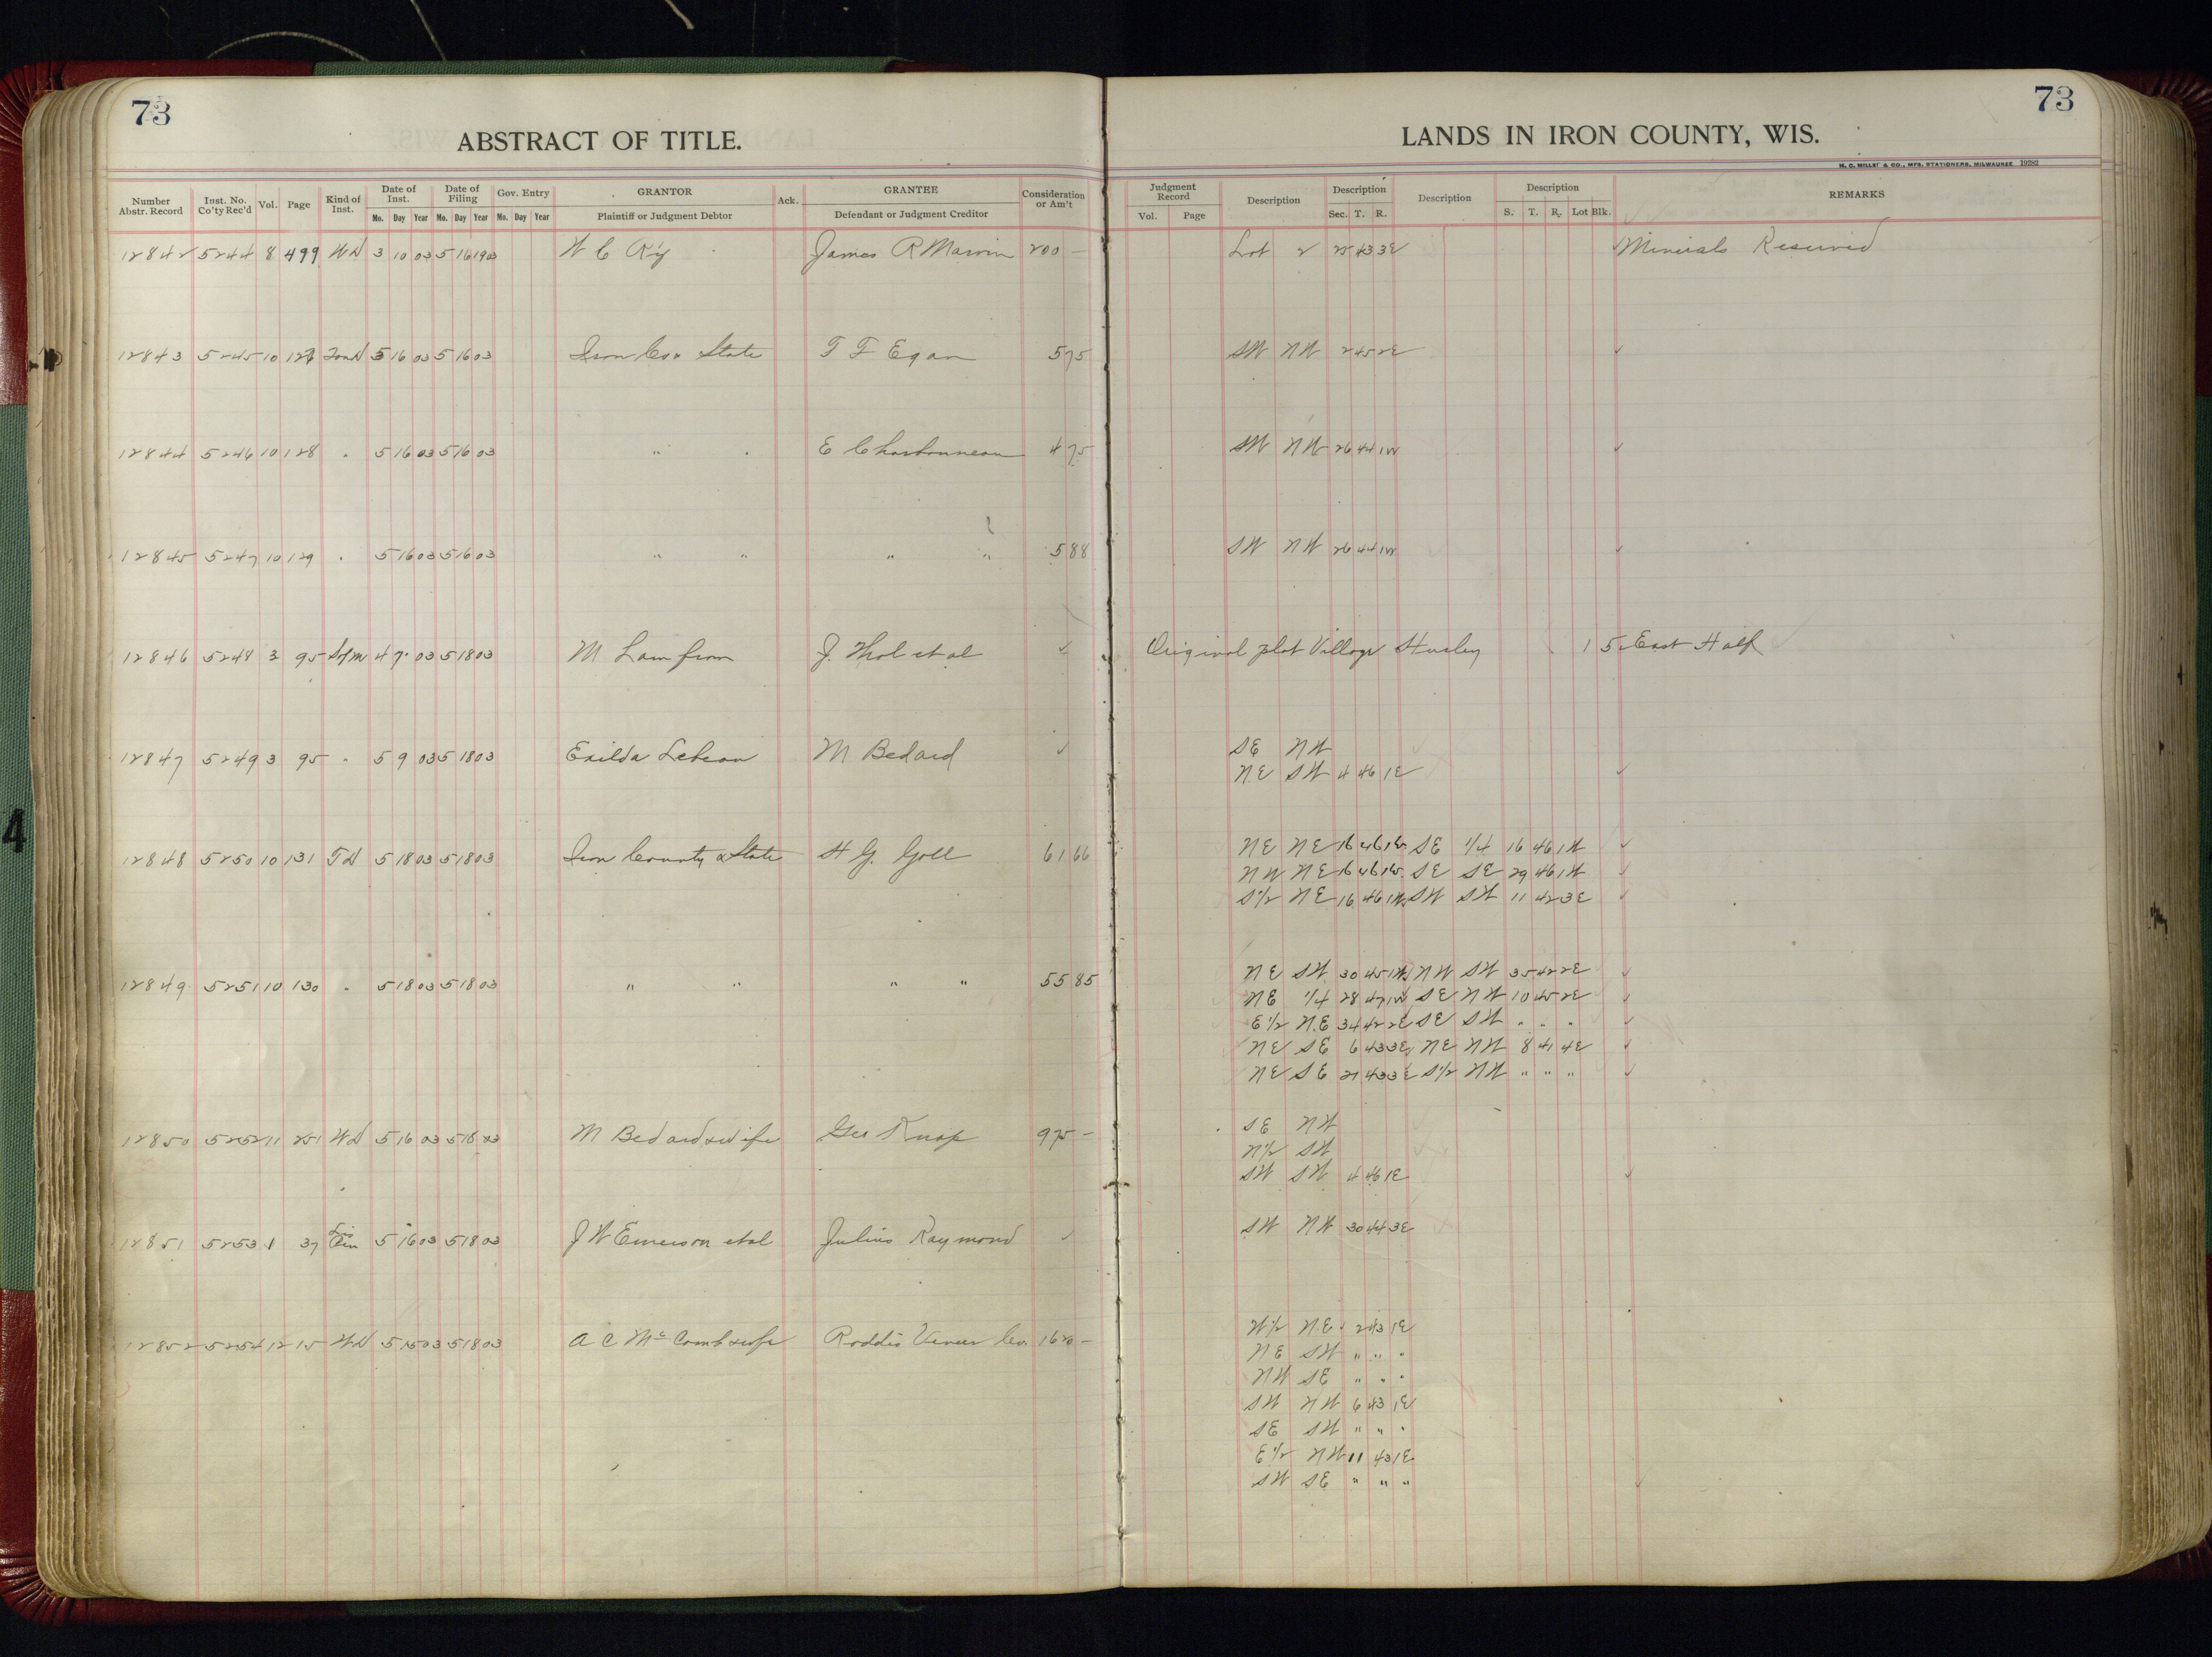 73
73
ABSTRACT OF TITLE.
LANDS IN IRON COUNTY, WIS.
H. C. MILLER & CO., MFG. STATIONERS, MILWAUKEE 19282
Number Abstr. Record Inst. No. Co'ty Rec'd Vol. Page Kind of Inst. Date of Inst. Mo. Day Year Date of Filing Mo. Day Year Gov. Entry Mo. Day Year GRANTOR Plaintiff or Judgment Debtor Ack. GRANTEE Defendant or Judgment Creditor Consideration or Am't Judgment Record Vol. Page Description Description Sec. T. R. Description Description S. T. R. Lot Blk. REMARKS
12842 5244 8 499 WD 3 10 03 5 16 1903 W C James R Marvin 200 — Lot 2 25 43 3E ✓ Minerals Reserved
12843 5245 10 5 16 03 5 16 03 Iron Co & State T F Egan 5 75 SW NW 2 45 2E ✓
12844 5246 10 128 " 5 16 03 5 16 03 " " E Charbonneau 4 75 SW NW 26 44 1W ✓
12845 5247 10 129 " 5 16 03 5 16 03 " " " " 5 88 SW NW 26 44 1W ✓
12846 5248 3 95 4 7 03 5 18 03 M Lamfrom J. Thol et al ✓ Original plat Village Hurley 1 5 East Half
12847 5249 3 95 " 5 9 03 5 18 03 Exilda Lebeau M Bedard ✓ SE NW
NE SW 4 46 1E ✓
12848 5250 10 131 TD 5 18 03 5 18 03 Iron County & State H G. Goll 61 66 NE NE 16 46 1W SE 1/4 16 46 1W ✓
NW NE 16 46 1W SE SE 29 46 1W ✓
S1/2 NE 16 46 1W SW SW 11 42 3E ✓
12849 5251 10 130 " 5 18 03 5 18 03 " " " " 55 85 NE SW 30 45 1W NW SW 35 42 2E ✓
NE 1/4 28 47 1W SE NW 10 45 2E ✓
E1/2 NE 34 42 2E SE SW " " " ✓
NE SE 6 43 3E NE NW 8 41 4E ✓
NE SE 21 43 3E S1/2 NW " " " ✓
12850 5252 11 251 WD 5 16 03 5 18 03 M Bedard & wife Geo 975 — SE NW
N1/2 SW
SW SW 4 46 1E ✓
12851 5253 1 37 Lis Pen 5 16 03 5 18 03 J W Emerson et al Julius Raymond ✓ SW NW 30 44 3E
12852 5254 12 15 WD 5 15 03 5 18 03 A C McComb & wife Roddis Veneer Co. 1620 — W1/2 NE 2 43 1E
NE SW " " "
NW SE " " "
SW NW 6 43 1E
SE SW " " "
E1/2 NW 11 43 1E
SW SE " " " ✓
4